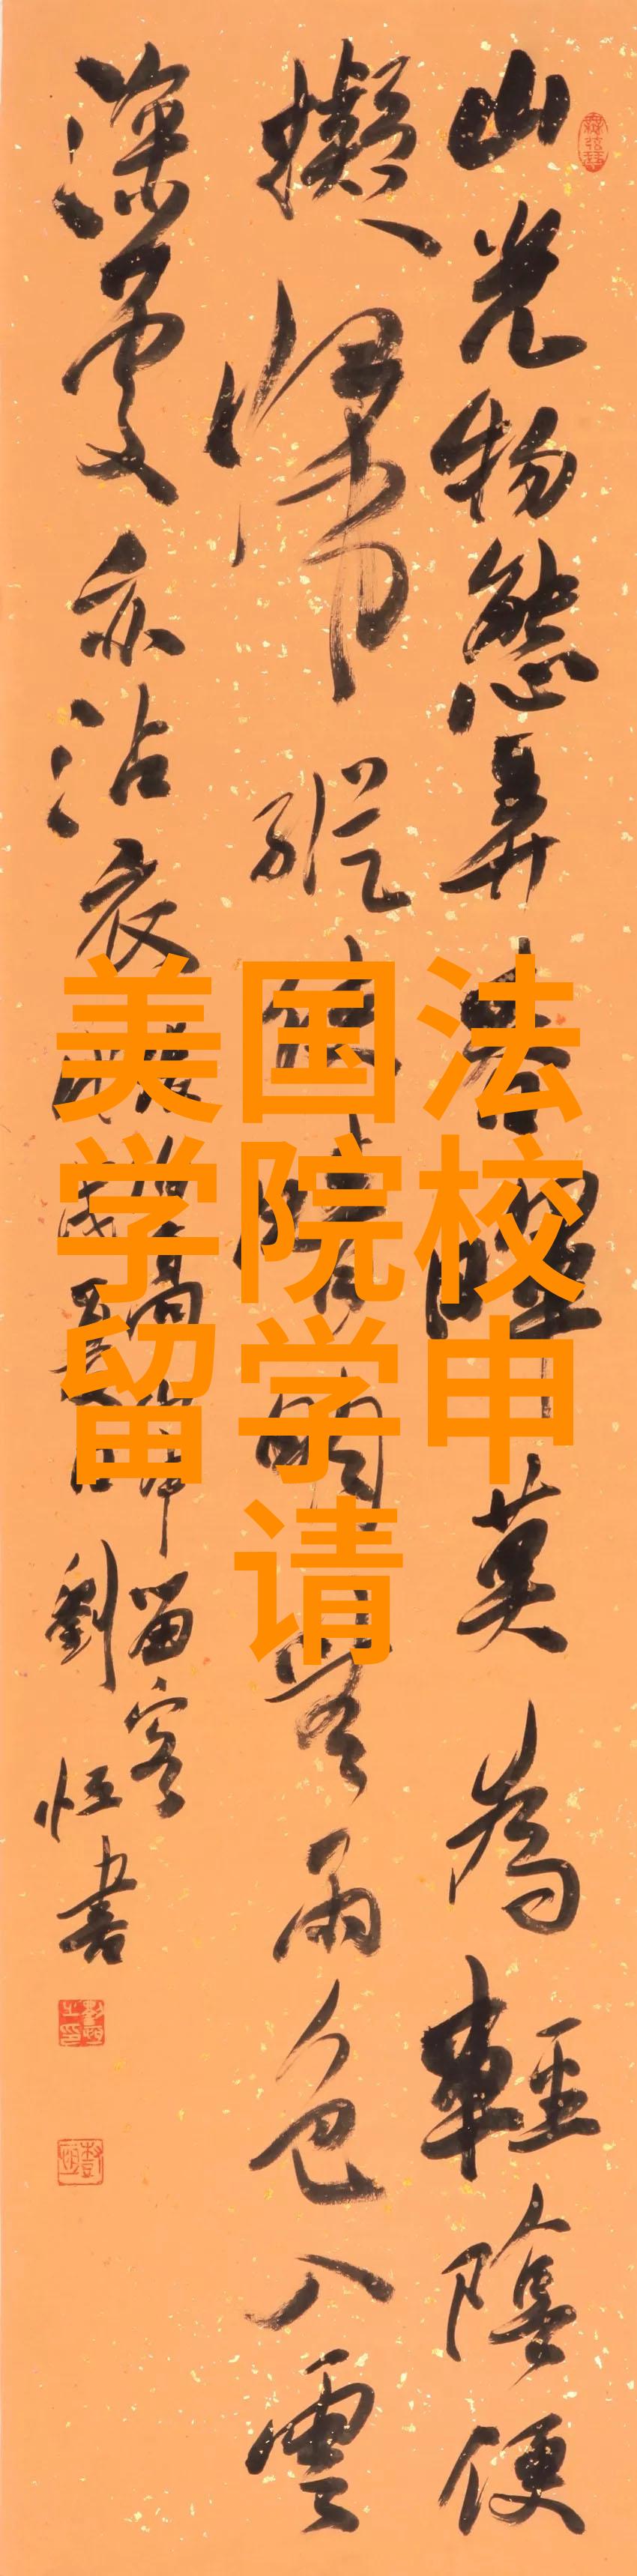 山光物態弄春暉莫為輕陰便
擬歸縱使晴明無雨色入雲
深處亦沾衣
留客
劉恒書
美国法
学院校
留学申
请